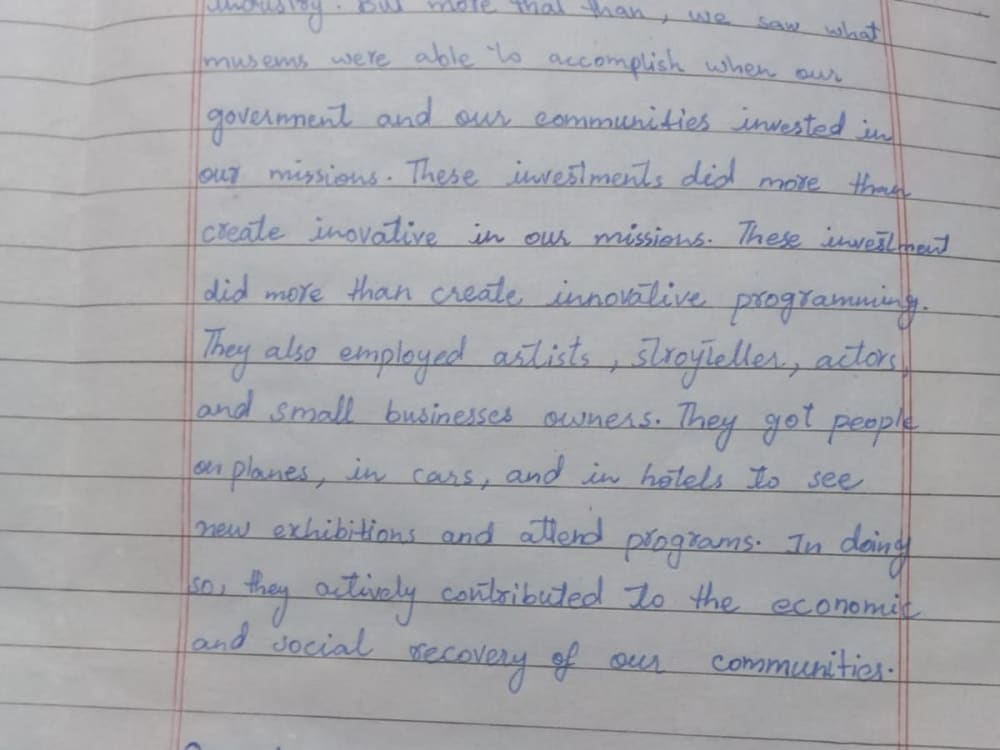 industry. But more that than, we saw what
musems were able to accomplish when our
government and our communities invested in
our missions. These investments did more than
create inovative in our missions. These investment
did more than create innovative programming.
They also employed artists, stroyteller, actors,
and small businesses owners. They got people
on planes, in cars, and in hotels to see
new exhibitions and attend programs. In doing
so, they actively contributed to the economic
and social recovery of our communities.